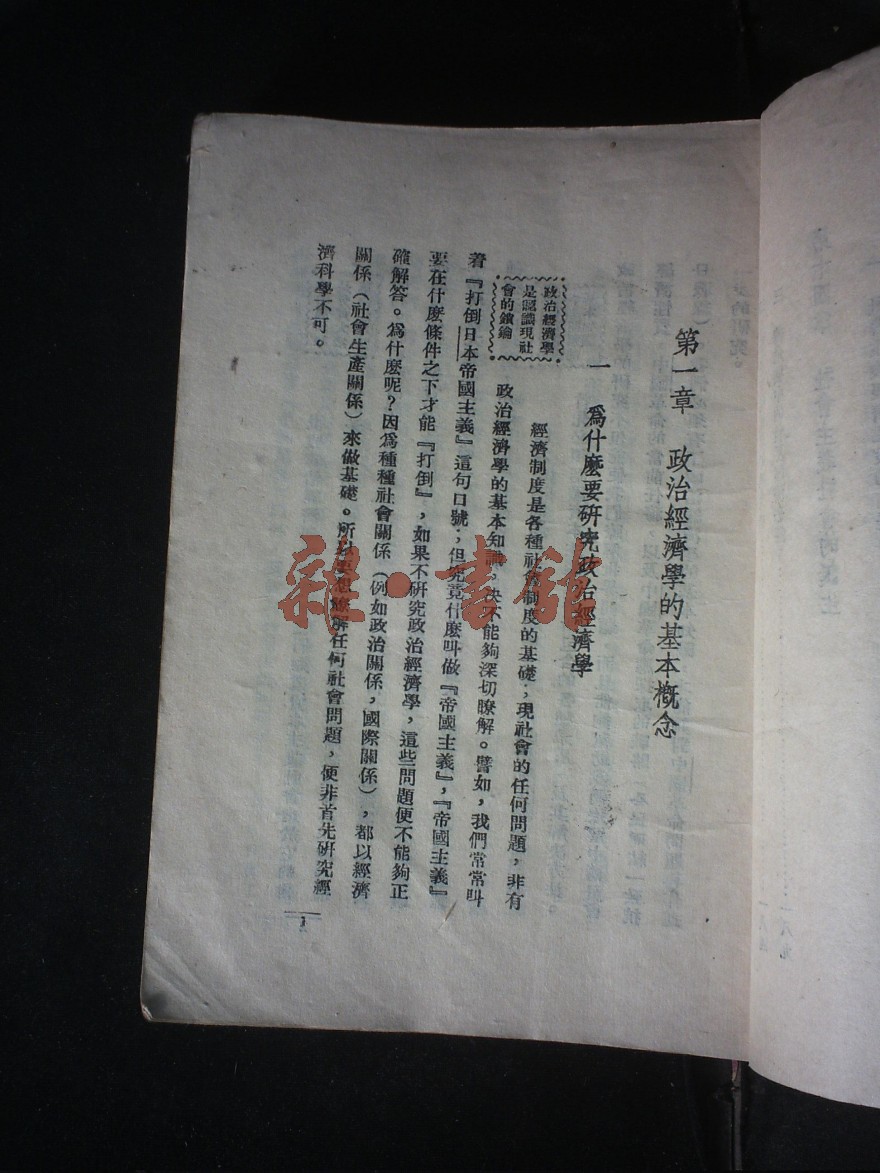 第一章　政治經濟學的基本槪念
一　爲什麽要研究政治經濟學
政治經濟學
是認識現社
會的鎖鑰
經濟制度是各種社會制度的基礎；現社會的任何問題，非有
政治經濟學的基本知識，決不能夠深切瞭解。譬如，我們常常叫
着『打倒日本帝國主義』這句口號；但究竟什麽叫做『帝國主義』，『帝國主義』
要在什麽條件之下才能『打倒』，如果不研究政治經濟學，這些問題便不能夠正
確解答。爲什麽呢？因爲種種社會關係（例如政治關係，國際關係），都以經濟
關係（社會生產關係）來做基礎。所以要想瞭解任何社會問題，便非首先研究經
濟科學不可。
1
雜·書館